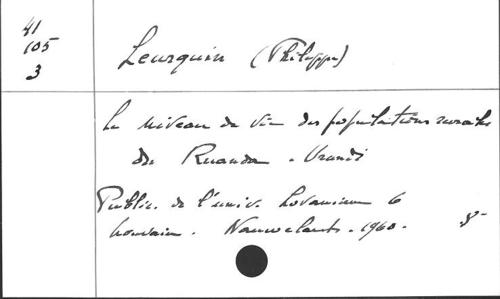 41
105
3
Leurquin (Philippe)
Le niveau de vie des populations rurales
du Ruanda - Urundi
Public. de l'univ. Lovanium 6
Louvain. Nauwelaerts. 1960. 8°